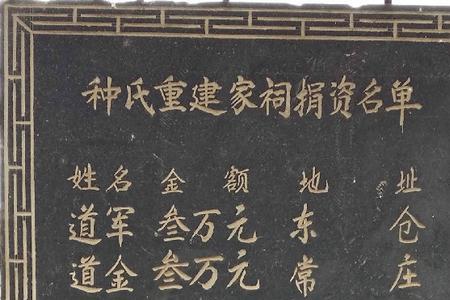 种氏重建家祠捐资名单
姓名 金额 地址
道军 叁万元 东仓
道金 叁万元 常庄